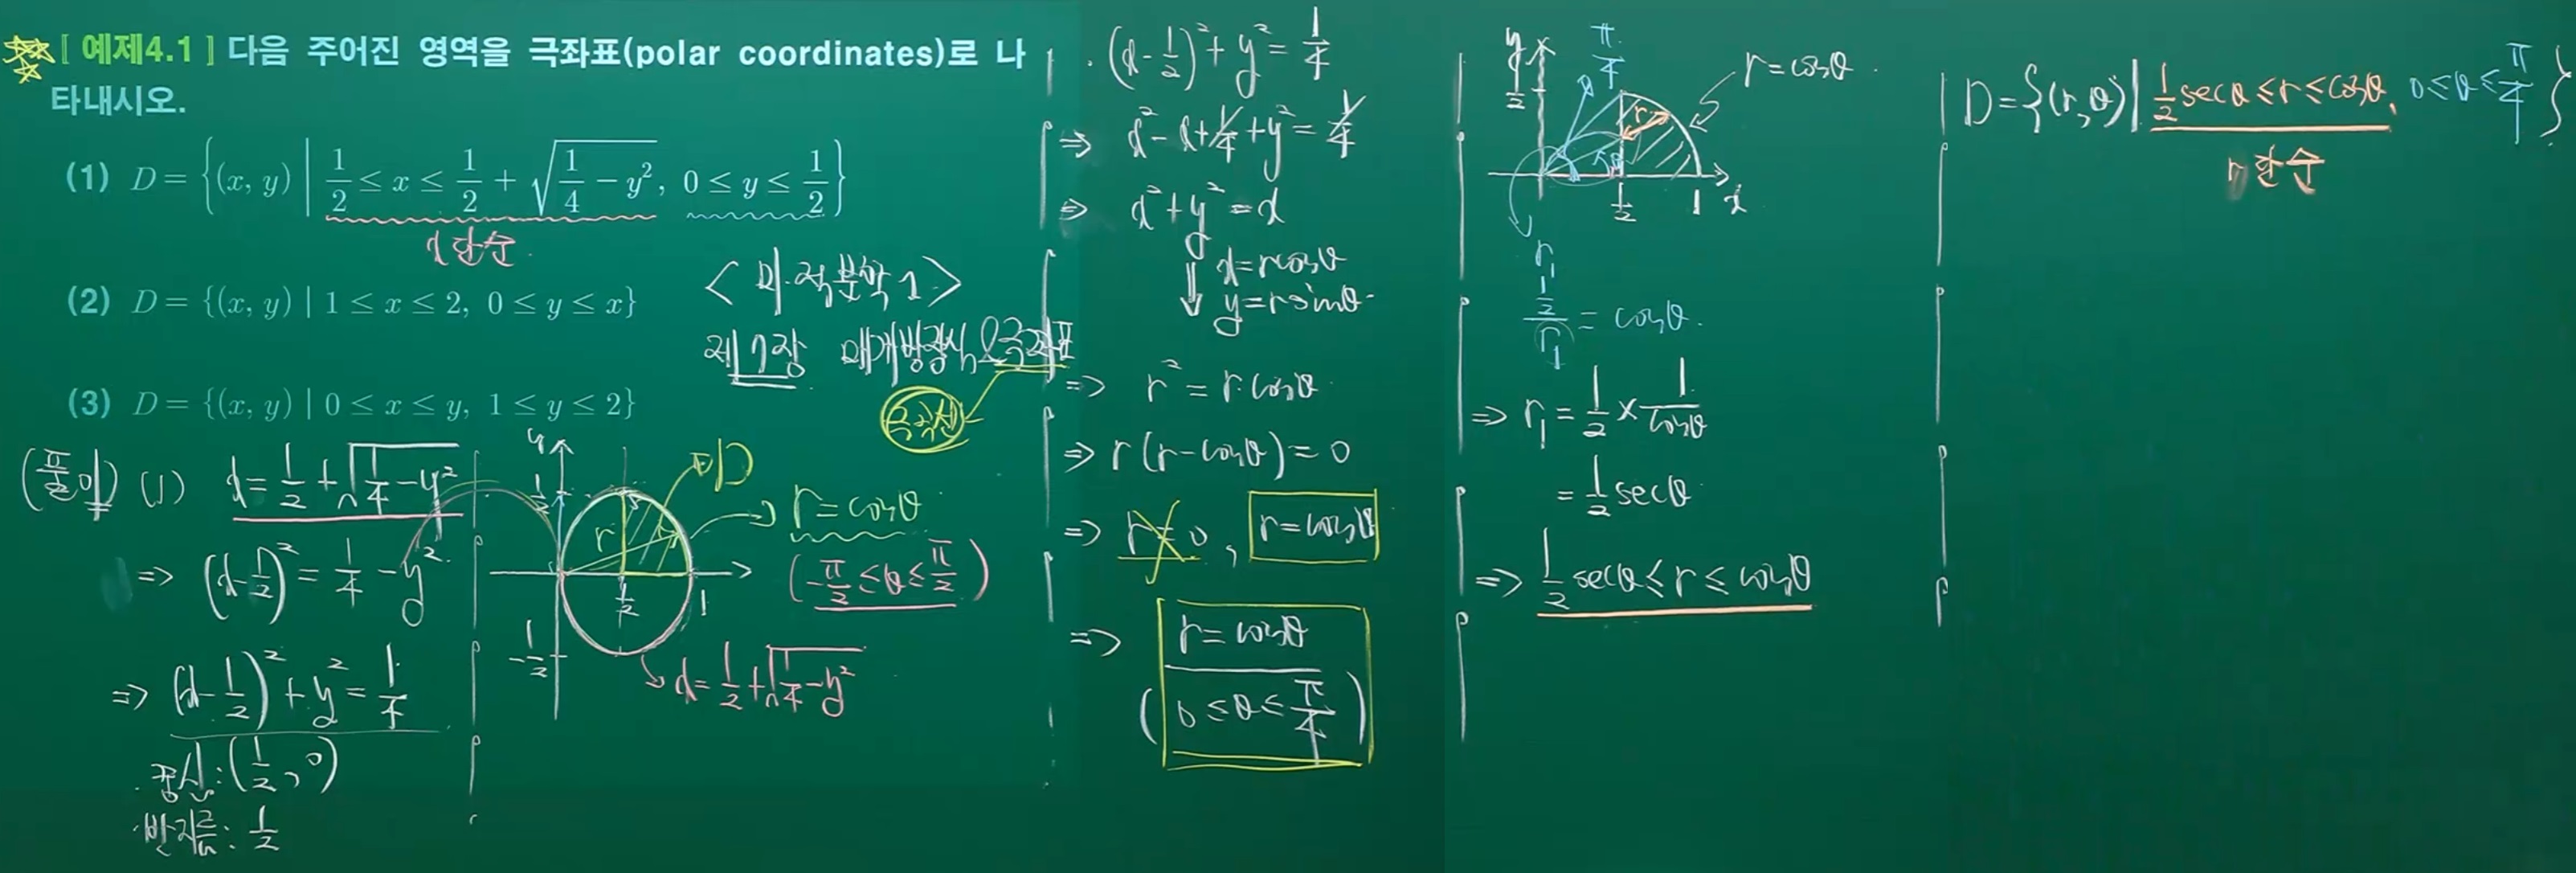 [ 예제4.1 ] 다음 주어진 영역을 극좌표(polar coordinates)로 나
타내시오.
(1) D = {(x, y) | 1/2 ≤ x ≤ 1/2 + √(1/4 − y²), 0 ≤ y ≤ 1/2}
x단순
(2) D = {(x, y) | 1 ≤ x ≤ 2, 0 ≤ y ≤ x}
(3) D = {(x, y) | 0 ≤ x ≤ y, 1 ≤ y ≤ 2}
<미적분학1>
제7장 매개방정식, 극좌표
공식
(풀이) (1) x = 1/2 + √(1/4 − y²)
⇒ (x − 1/2)² = 1/4 − y²
⇒ (x − 1/2)² + y² = 1/4
중심: (1/2, 0)
반지름: 1/2
y
1/2
D
r
r = cosθ
(−π/2 ≤ θ ≤ π/2)
1/2
1
−1/2
x = 1/2 + √(1/4 − y²)
(x − 1/2)² + y² = 1/4
⇒ x² − x + 1/4 + y² = 1/4
⇒ x² + y² = x
⇓ x = rcosθ
y = rsinθ
⇒ r² = r cosθ
⇒ r(r − cosθ) = 0
⇒ r = 0, r = cosθ
⇒ r = cosθ
(0 ≤ θ ≤ π/4)
y
π/4
r = cosθ
1/2
r
θ
1/2
1
x
r₁
(1/2)/r₁ = cosθ.
⇒ r₁ = 1/2 × 1/cosθ
= 1/2 secθ
⇒ 1/2 secθ ≤ r ≤ cosθ
D = {(r, θ) | 1/2 secθ ≤ r ≤ cosθ, 0 ≤ θ ≤ π/4}
r단순